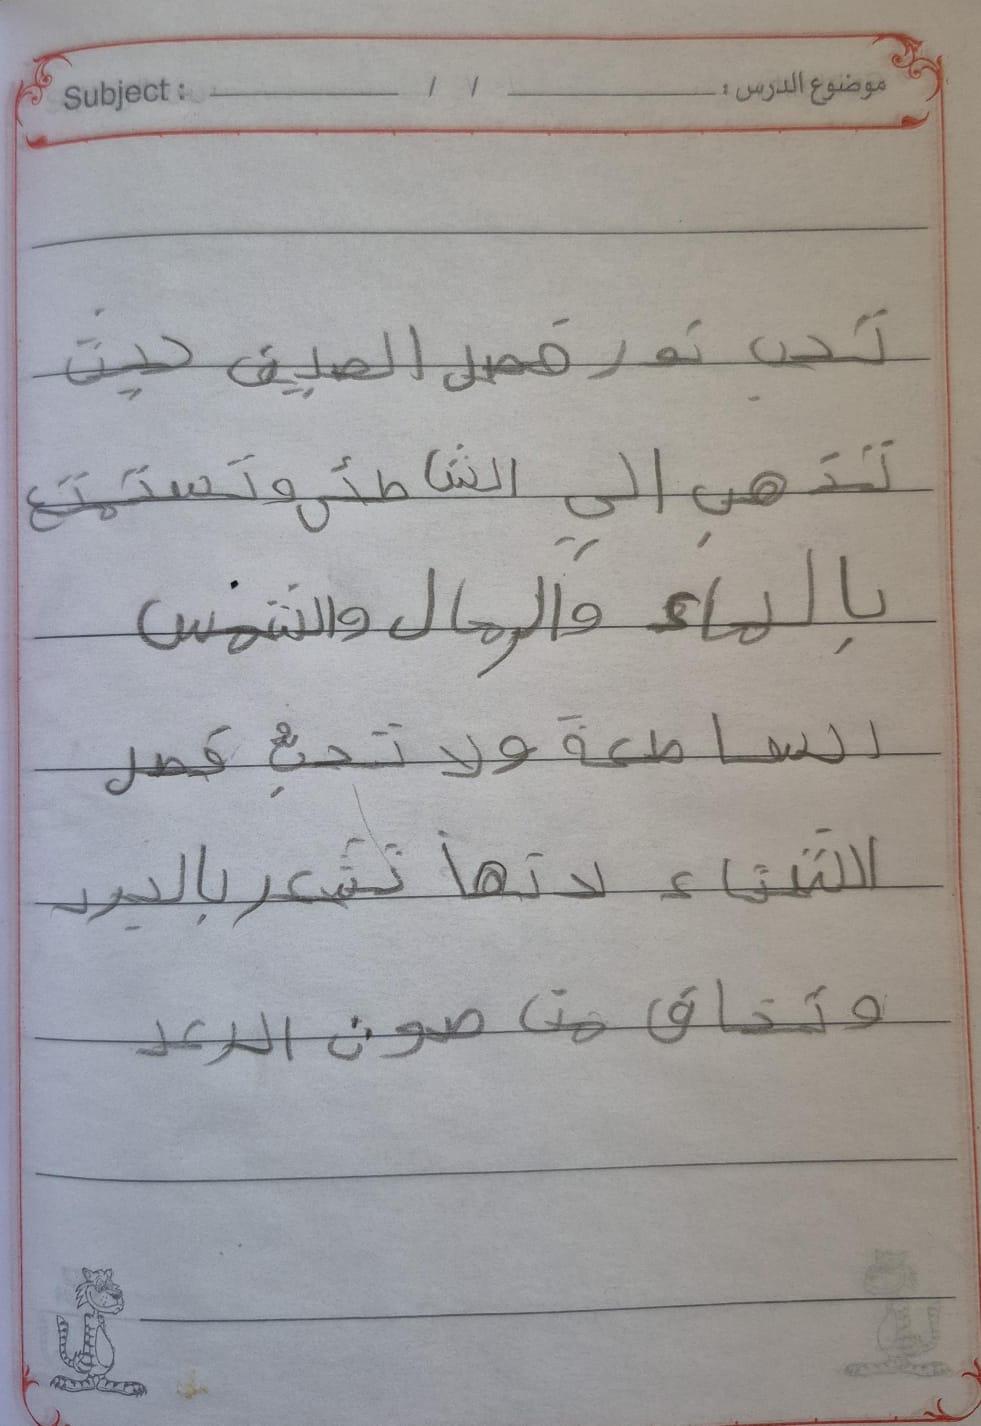 Subject : / / موضوع الدرس :
تحب نور فصل الصيف حيث
تذهب الى الشاطئ وتستمتع
بالماء والرمال والشمس
الساطعة ولا تحب فصل
الشتاء لانها تشعر بالبرد
وتخاف من صوت الرعد